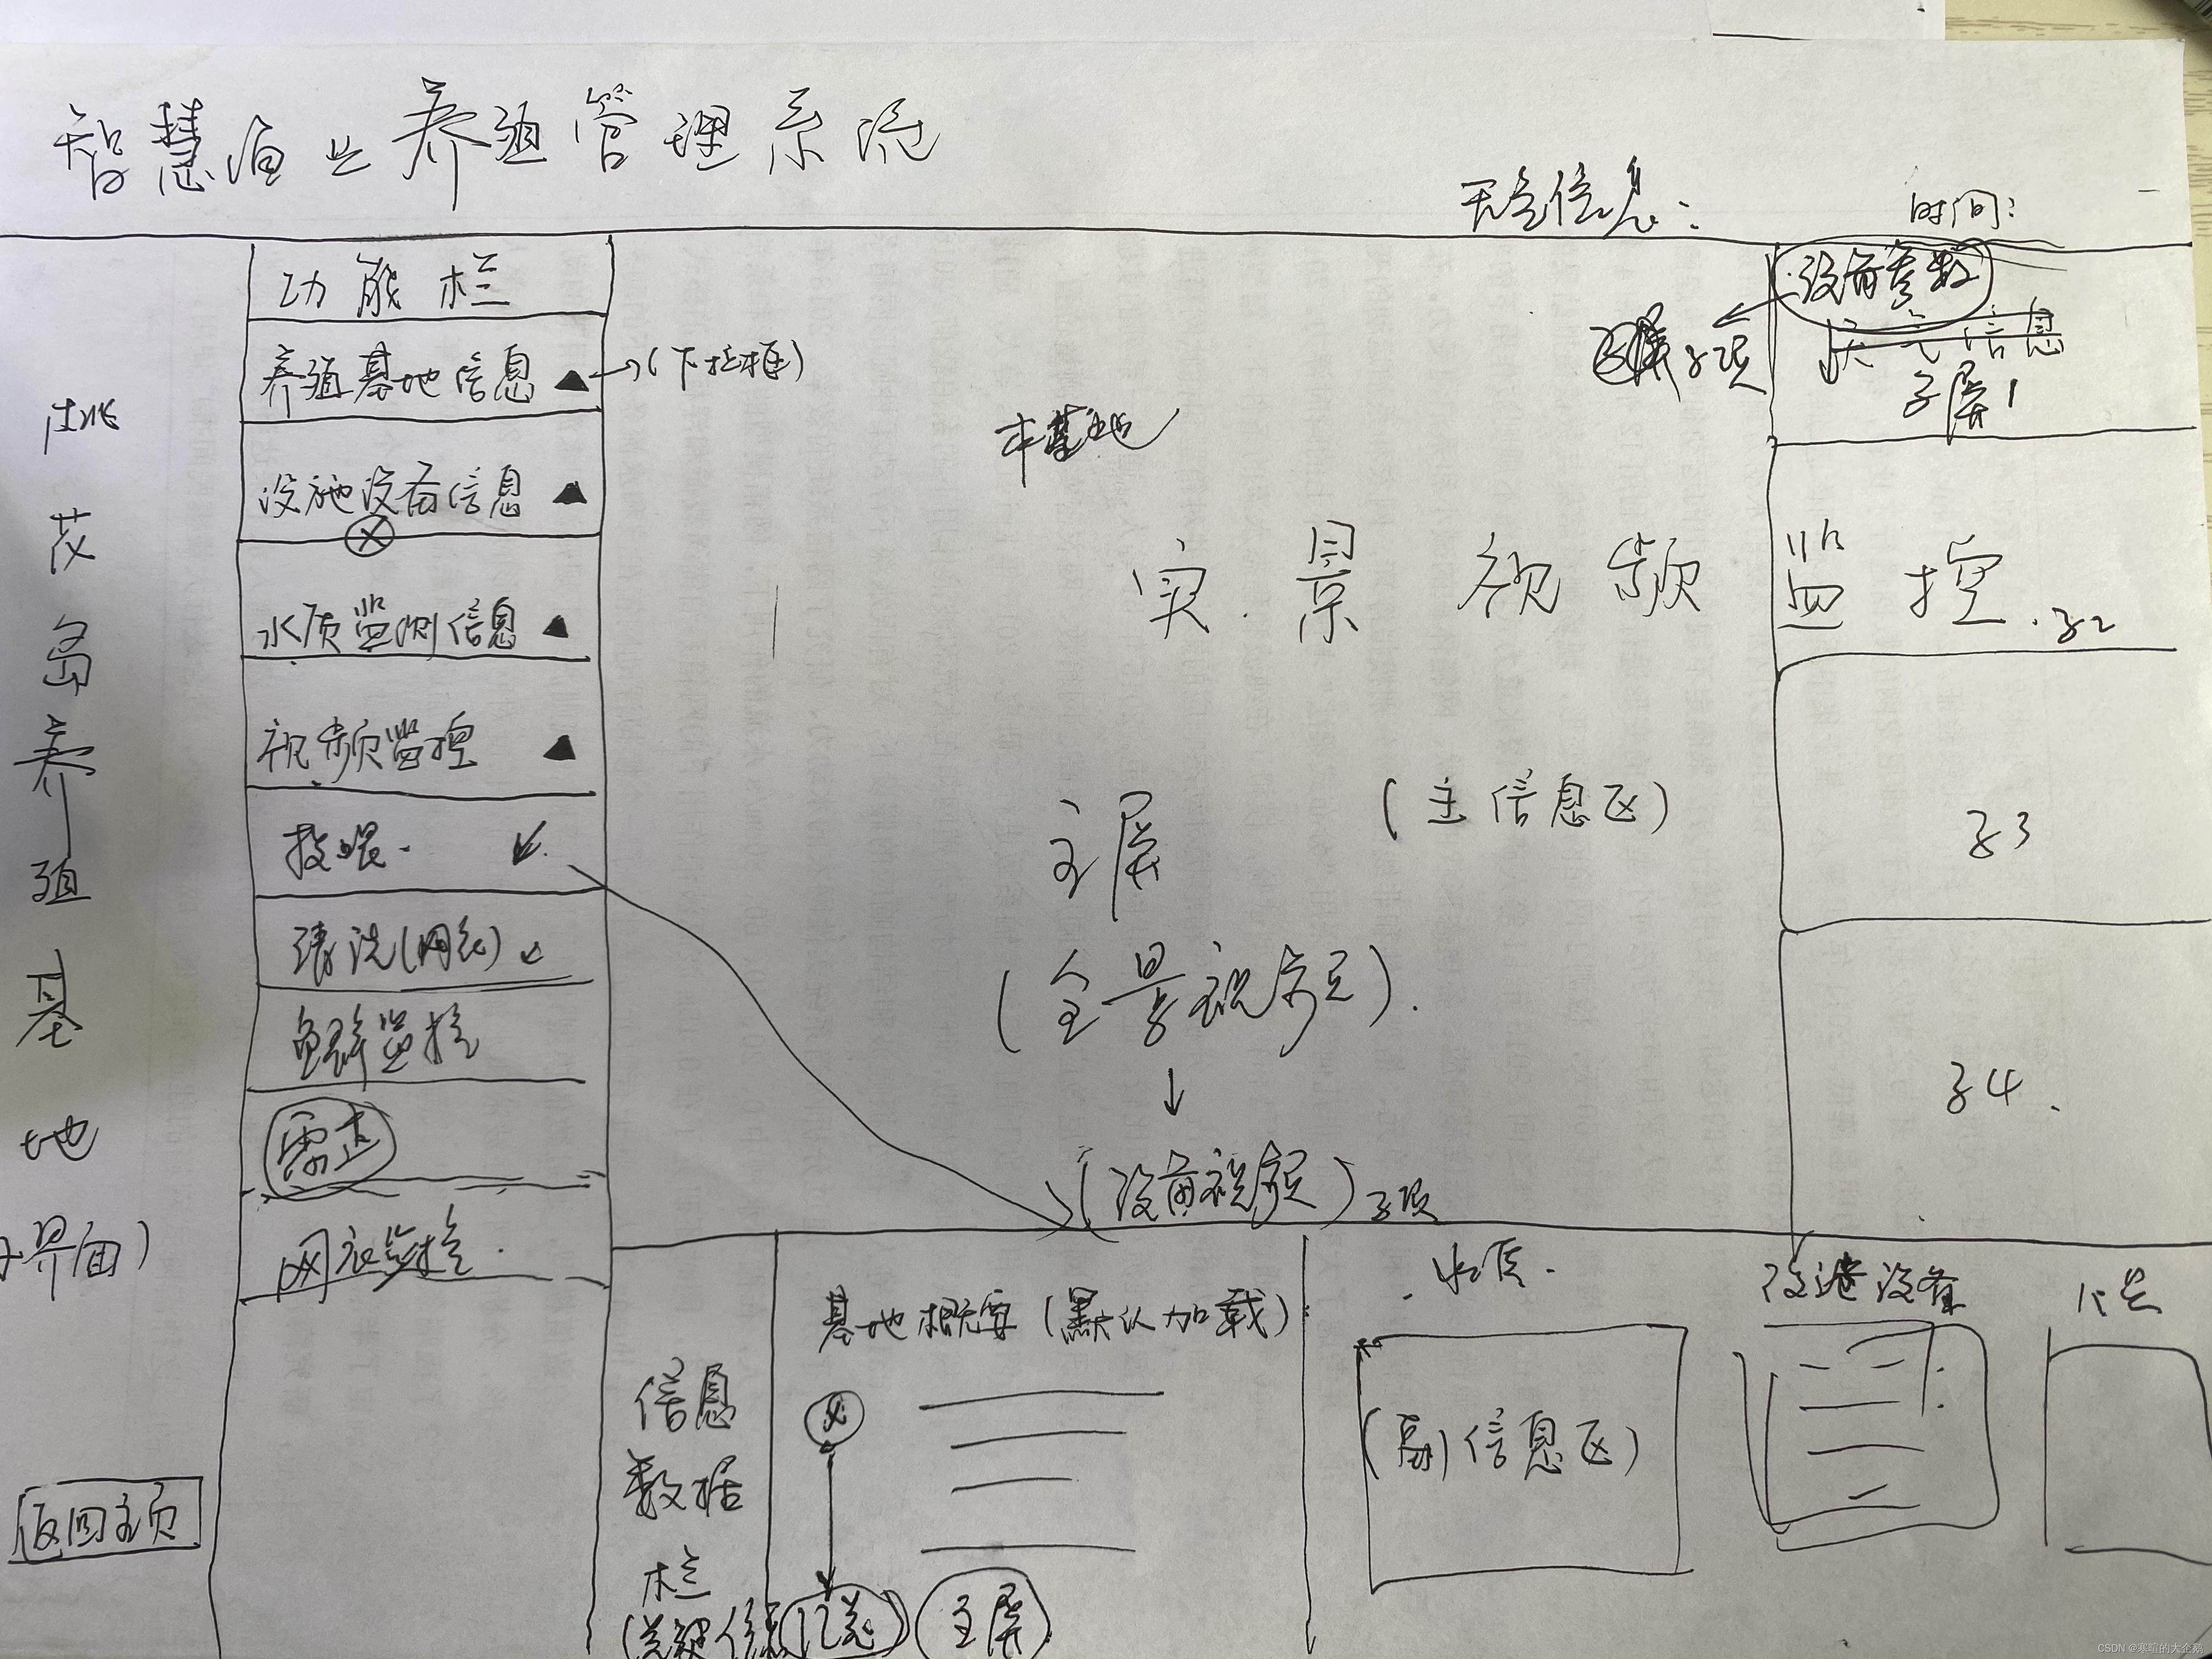 智慧渔业养殖管理系统
天气信息:
时间:
功能栏
养殖基地信息▲
→(下拉框)
设施设备信息▲
水质监测信息▲
视频监控▲
投喂.
清洗(网衣)
鱼群监控
雷达
网衣监控.
茂岛养殖基地
子界面)
返回主页
本基地
实景视频监控.
主屏
(主信息区)
(全景视频).
↓
(设备视频)子项
设备参数
子项
天气信息
子屏1
子2
子3
子4.
信息数据栏
(关键信息
汇总)
主屏
基地概要(默认加载)
水质.
(副信息区)
改造设备
CSDN @寒暄的大企鹅